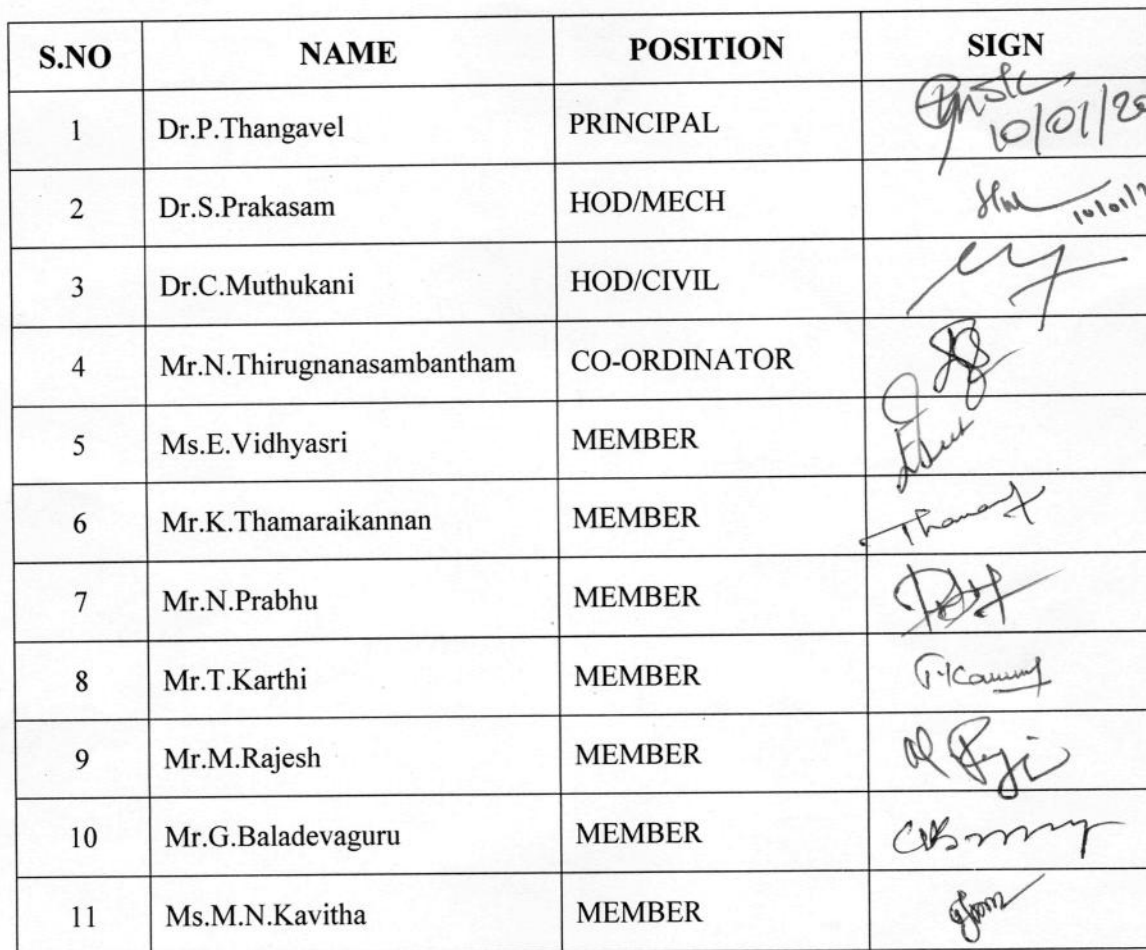 S.NO NAME POSITION SIGN
1 Dr.P.Thangavel PRINCIPAL 10/01/20
2 Dr.S.Prakasam HOD/MECH 10/01/
3 Dr.C.Muthukani HOD/CIVIL
4 Mr.N.Thirugnanasambantham CO-ORDINATOR
5 Ms.E.Vidhyasri MEMBER
6 Mr.K.Thamaraikannan MEMBER
7 Mr.N.Prabhu MEMBER
8 Mr.T.Karthi MEMBER
9 Mr.M.Rajesh MEMBER
10 Mr.G.Baladevaguru MEMBER
11 Ms.M.N.Kavitha MEMBER